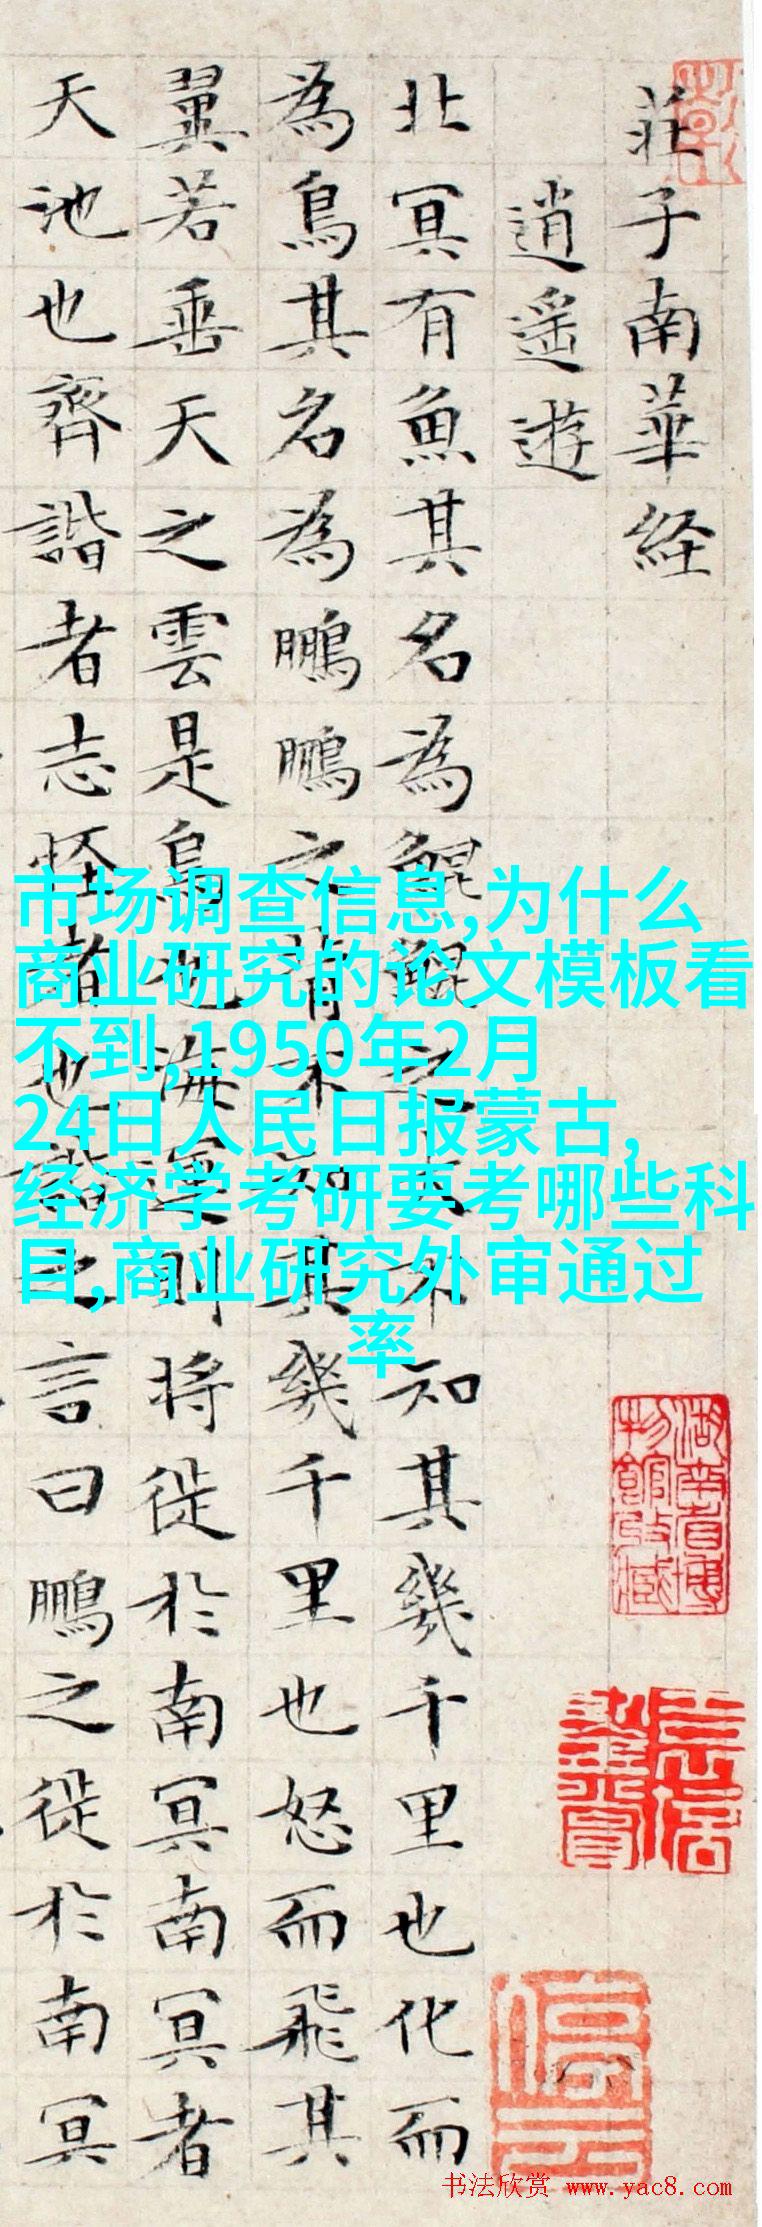 莊子南華経
逍遙遊
北冥有魚其名為鯤鯤之大不知其幾千里也化而
為鳥其名為鵬鵬之背不知其幾千里也怒而飛其
翼若垂天之雲是鳥也海運則将徙於南冥南冥者
天池也齊諧者志怪者也諧之言曰鵬之徙於南冥
市场调查信息,为什么
商业研究的论文模板看
不到,1950年2月
24日人民日报蒙古,
经济学考研要考哪些科
目,商业研究外审通过
率
湖南省博
物館收藏
书法欣赏 www.yac8.com